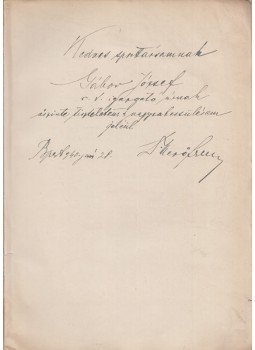 Kedves sporttársamnak
Gábor József
c. t. igazgató úrnak
őszinte tiszteletem s nagyrabecsülésem
jeléül.
Bpest 940 jún 28.